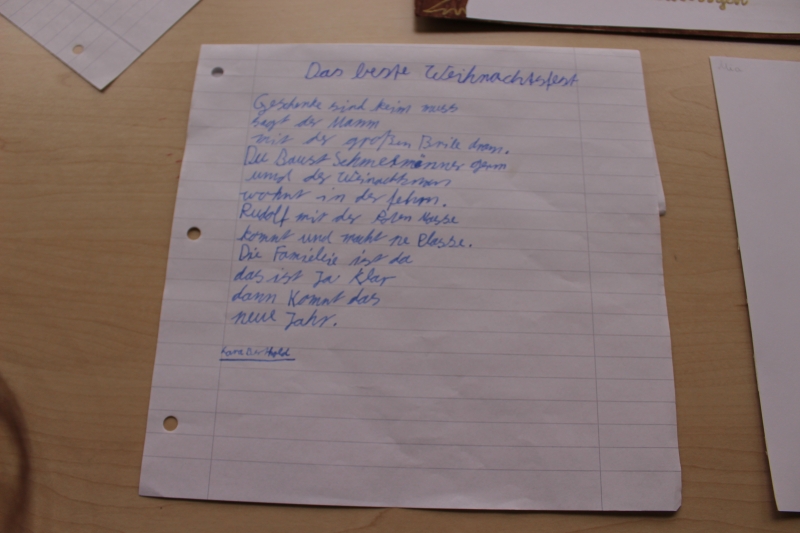 Das beste Weihnachtsfest
Geschenke sind keim muss
sagt der Mann
mit der großen Brile dran.
Du Baust Schneemänner gern
umd der Weinachtsman
wohnt in der fehrn.
Rudolf mit der Roten Nasse
kommt und macht ne Plasse.
Die Familie ist da
das ist Ja Klar
dann Kommt das
neue Jahr.